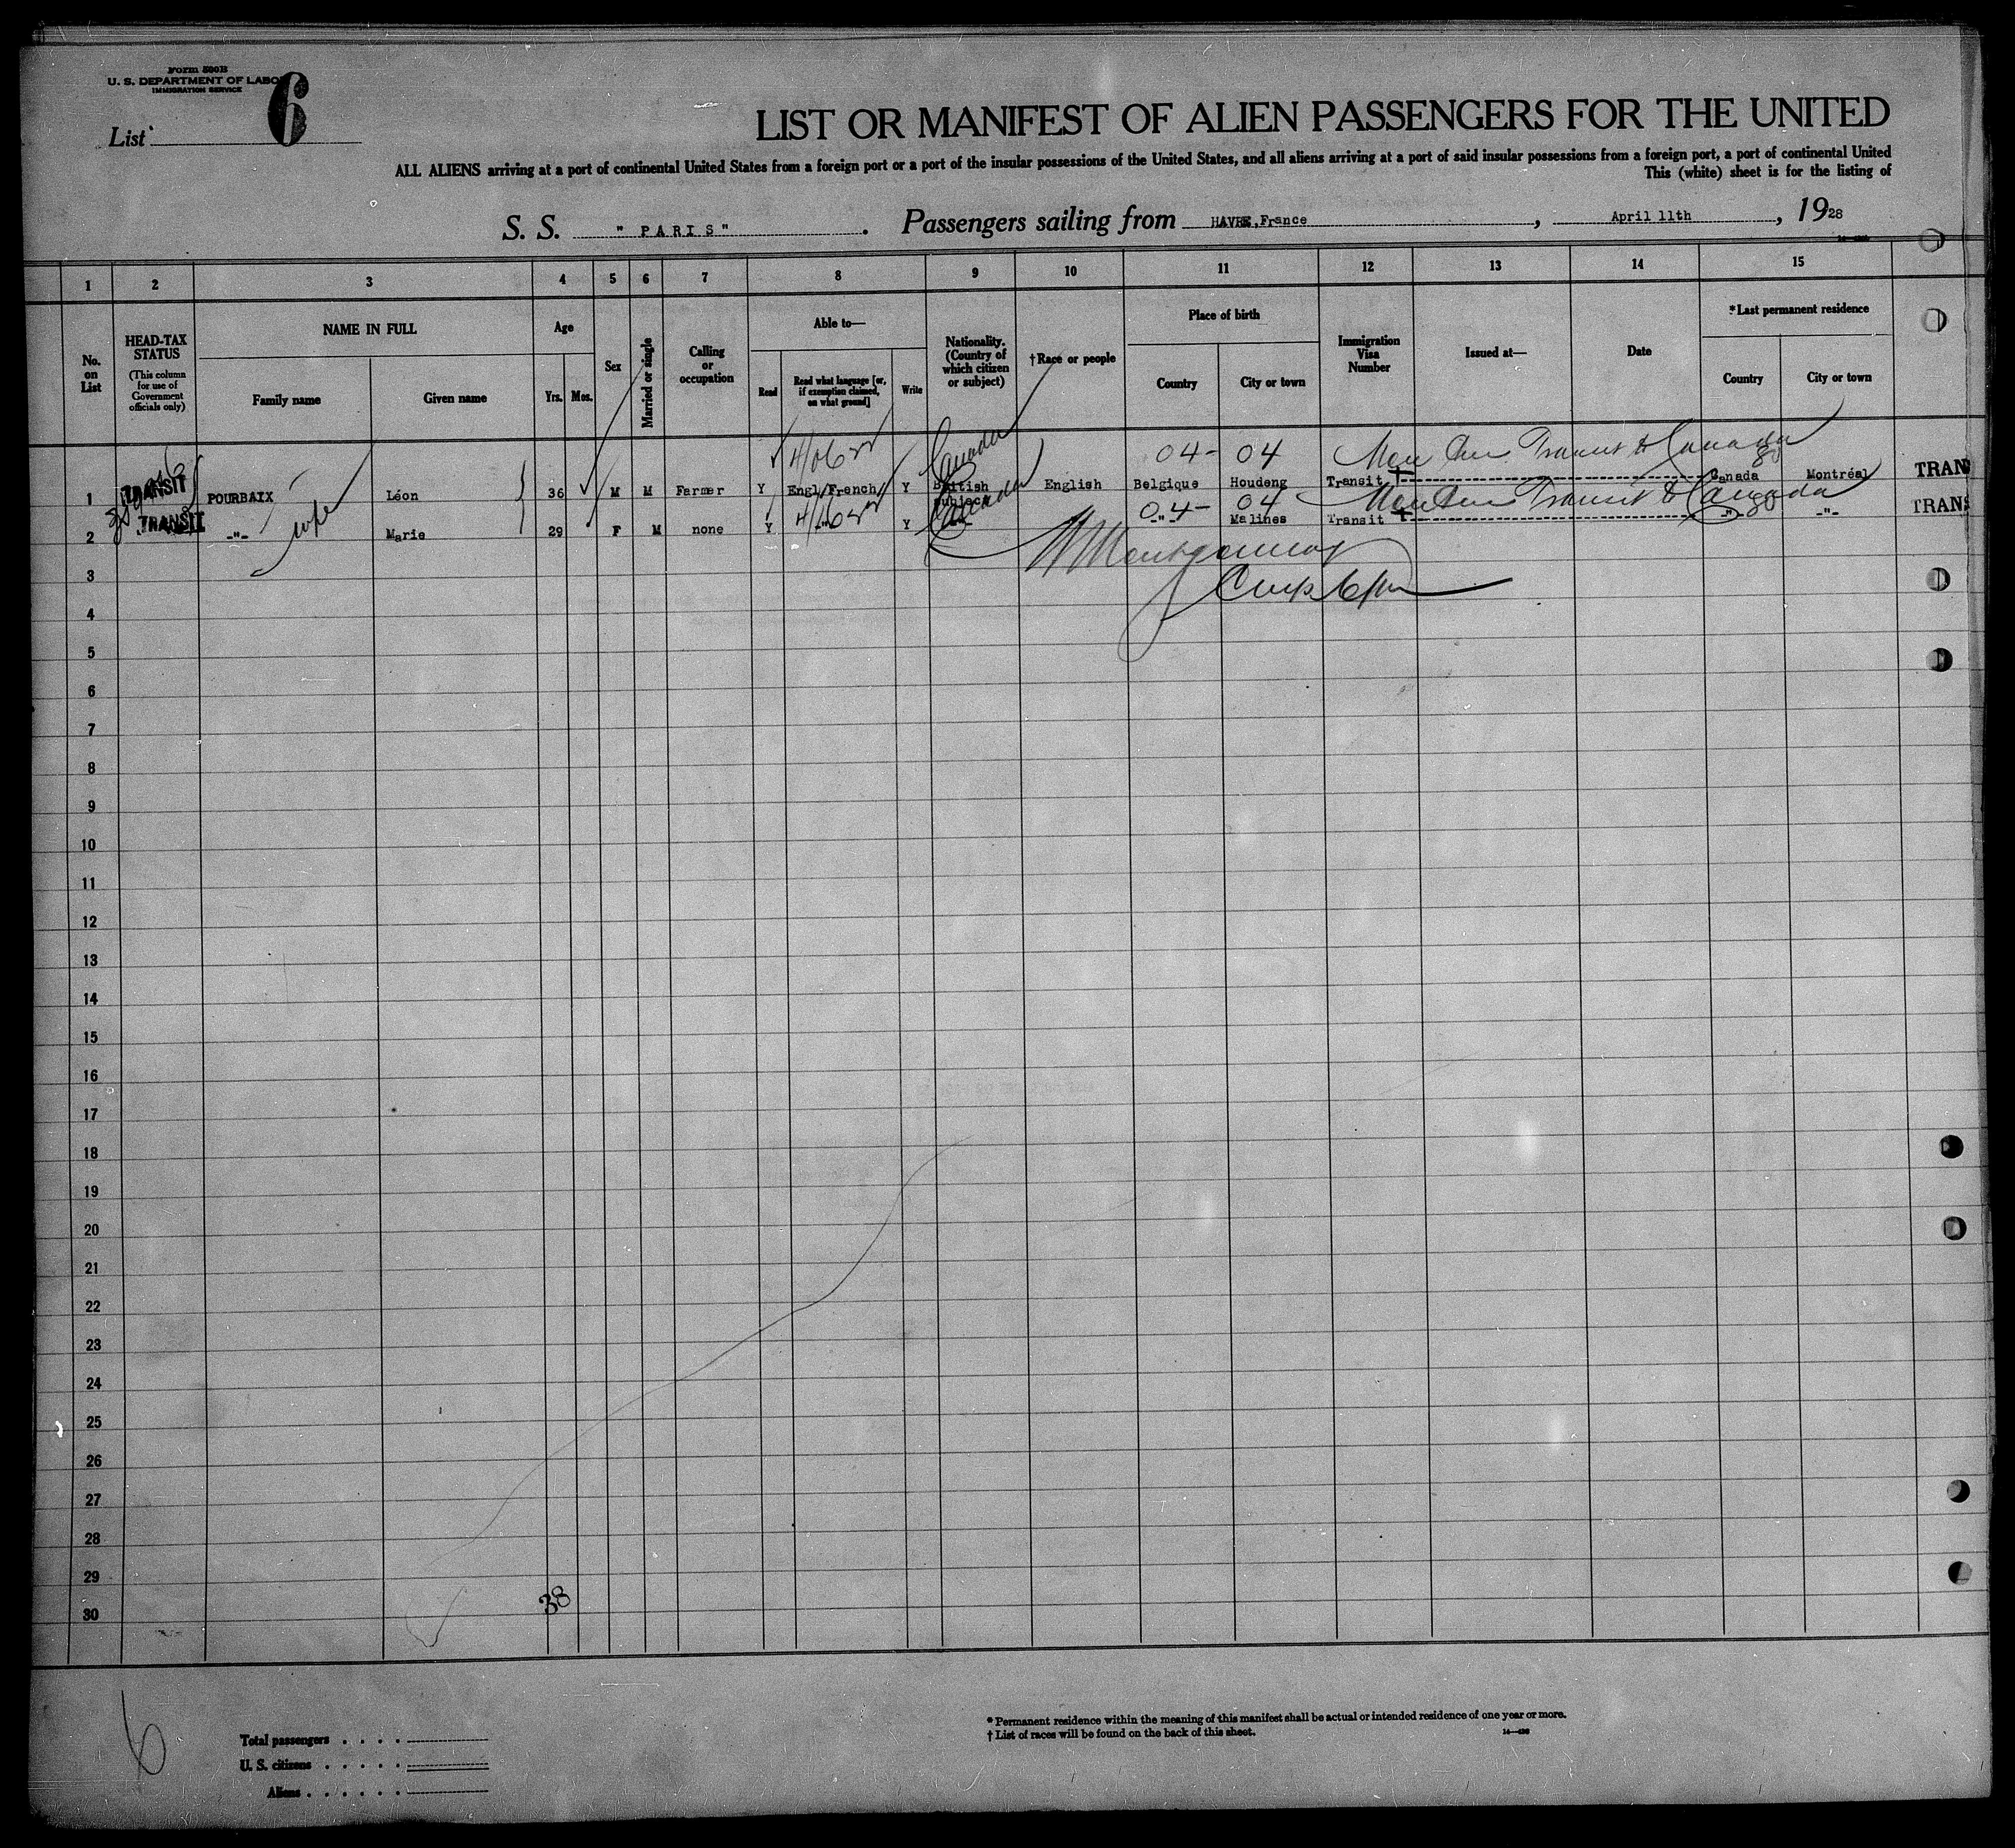 Form 500B
U. S. DEPARTMENT OF LABOR
IMMIGRATION SERVICE
List 6
LIST OR MANIFEST OF ALIEN PASSENGERS FOR THE UNITED
ALL ALIENS arriving at a port of continental United States from a foreign port or a port of the insular possessions of the United States, and all aliens arriving at a port of said insular possessions from a foreign port, a port of continental United
This (white) sheet is for the listing of
S. S. "PARIS". Passengers sailing from HAVRE, France, April 11th, 1928
1 2 3 4 5 6 7 8 9 10 11 12 13 14 15
No. on List
HEAD-TAX STATUS
(This column for use of Government officials only)
NAME IN FULL
Family name
Given name
Age
Yrs. Mos.
Sex
Married or single
Calling or occupation
Able to—
Read
Read what language [or, if exemption claimed, on what ground]
Write
Nationality. (Country of which citizen or subject)
†Race or people
Place of birth
Country
City or town
Immigration Visa Number
Issued at—
Date
*Last permanent residence
Country
City or town
Canada 04- 04 Transit to Canada
1 TRANSIT POURBAIX Léon 36 M M Farmer Y Engl/French Y British subject English Belgique Houdeng Transit Canada Montréal TRANS
Canada 04- 04 Transit to Canada
2 TRANSIT -"- wife Marie 29 F M none Y -"- Y -"- Malines Transit -"- -"- TRANS
Montgomery
3
4
5
6
7
8
9
10
11
12
13
14
15
16
17
18
19
20
21
22
23
24
25
26
27
28
29
30
38
6
Total passengers
U. S. citizens
Aliens
*Permanent residence within the meaning of this manifest shall be actual or intended residence of one year or more.
†List of races will be found on the back of this sheet.